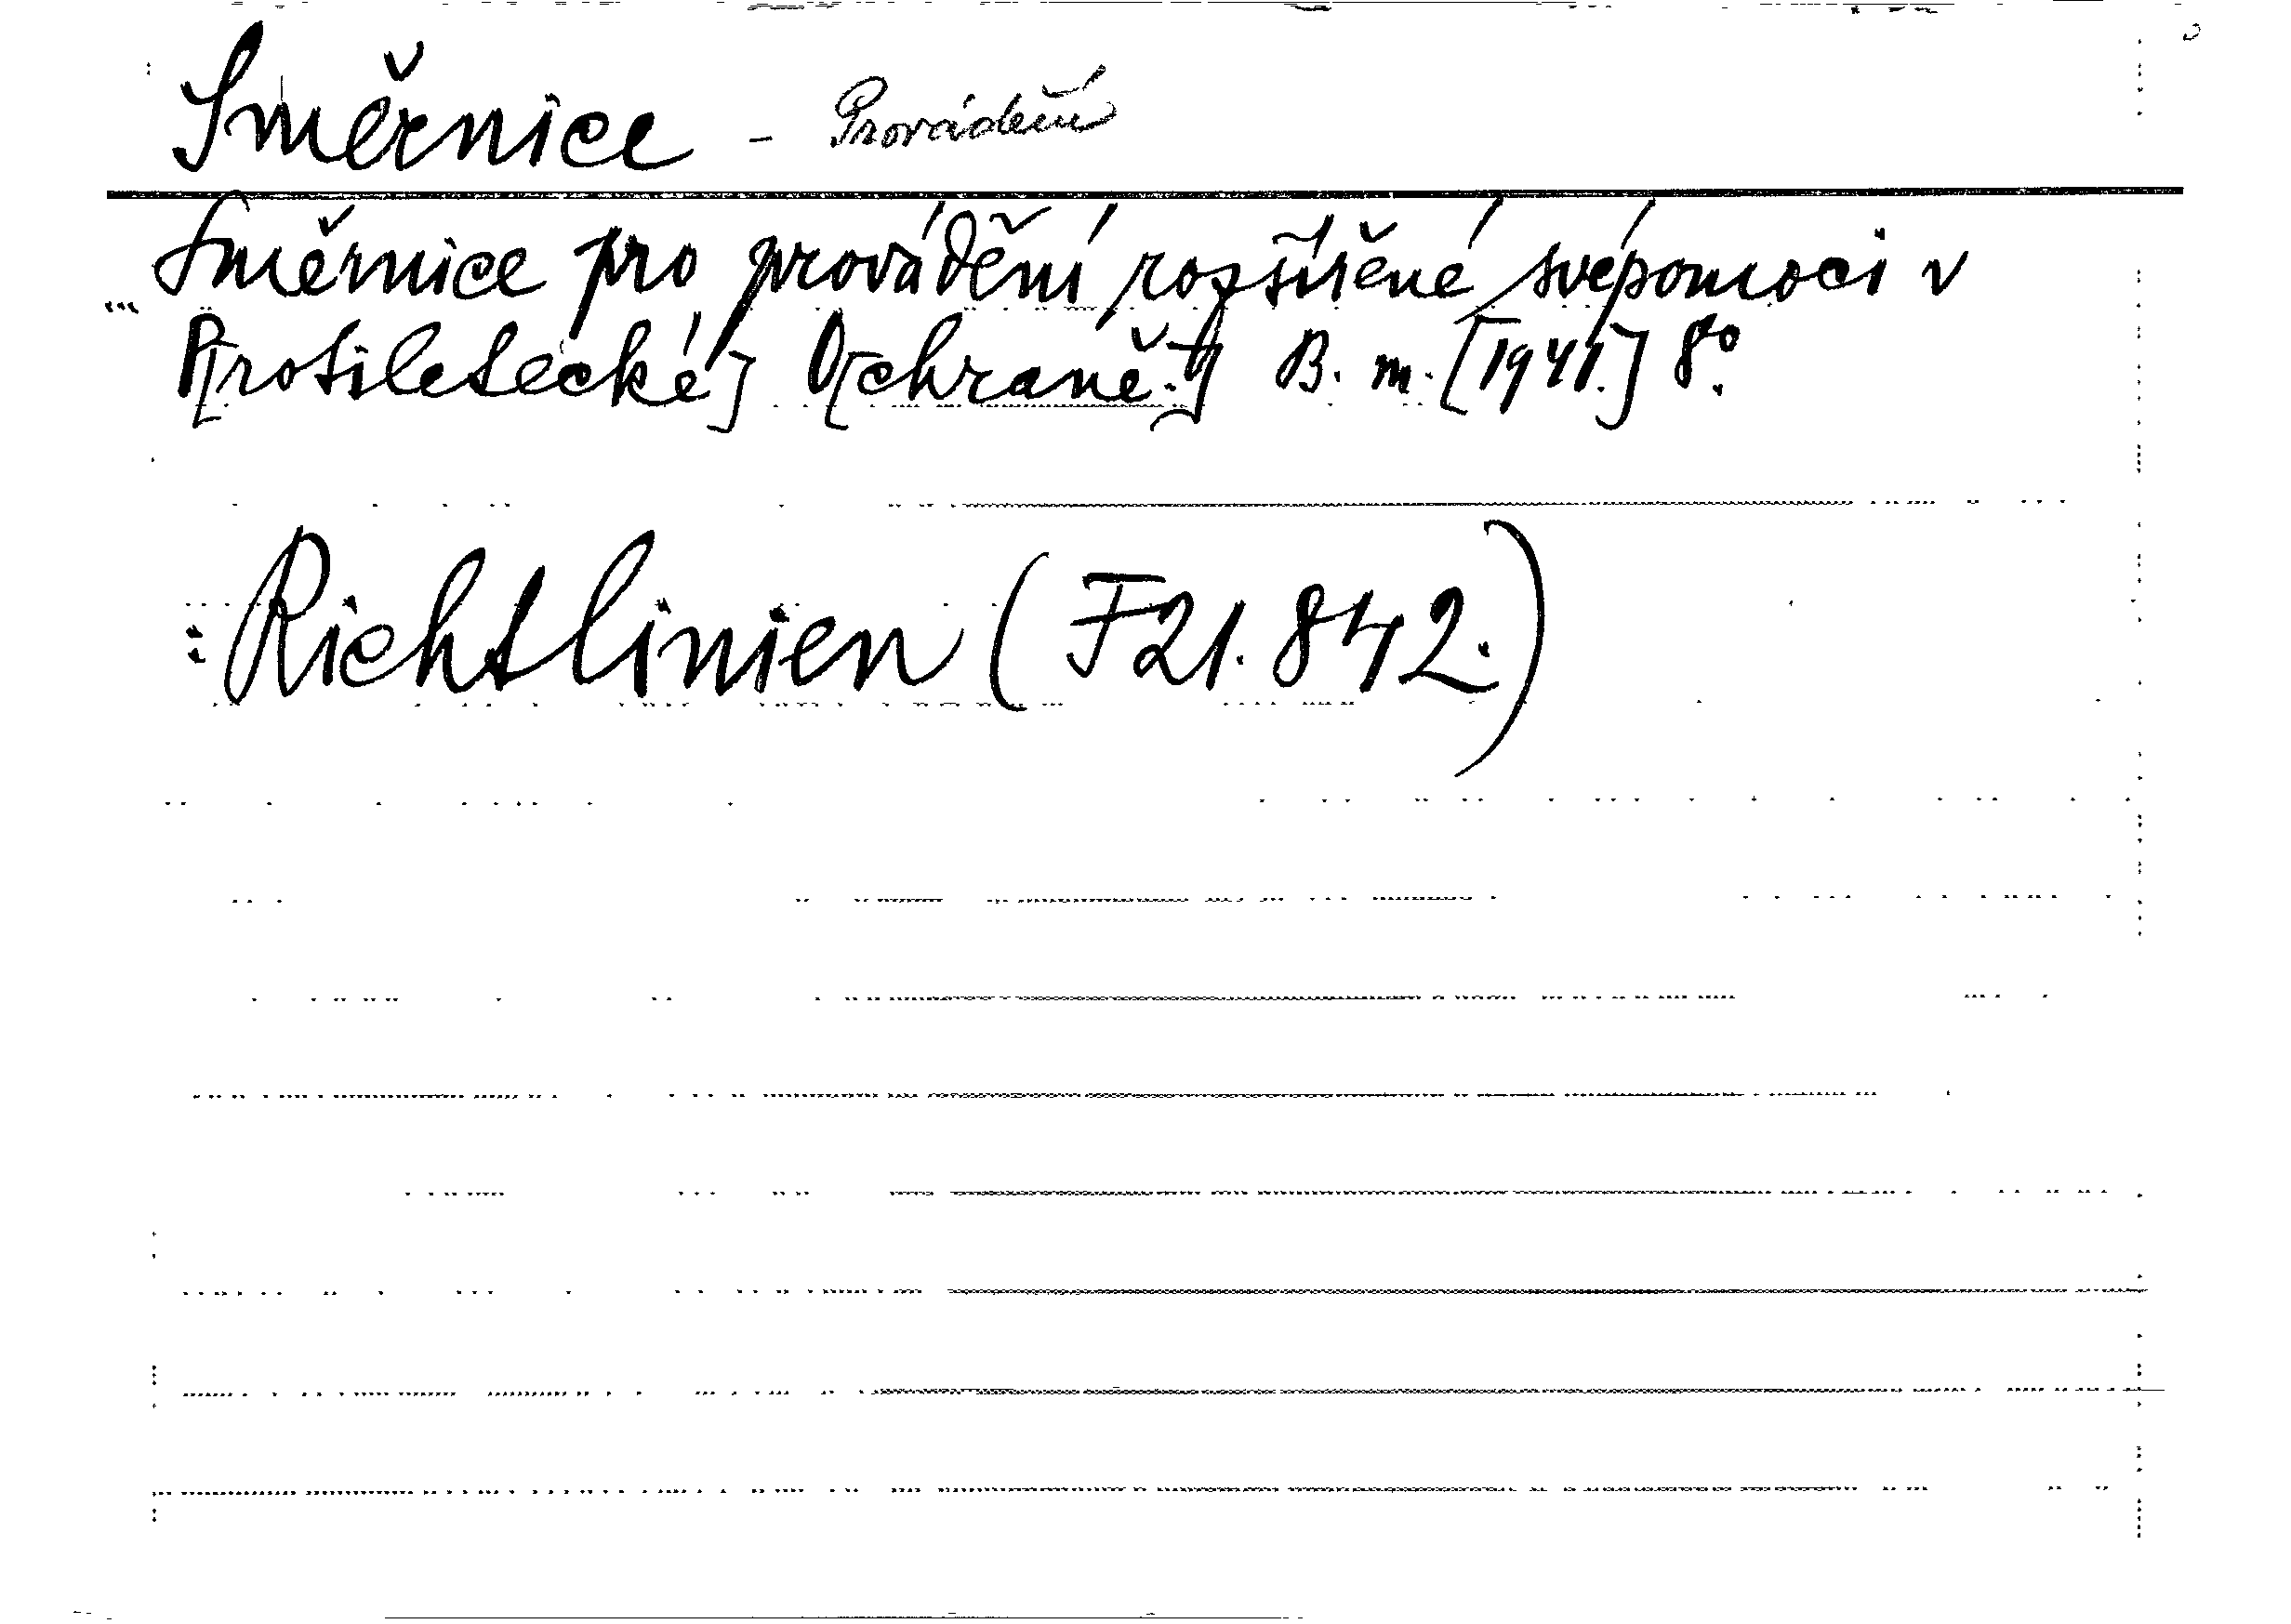 Směrnice - Provádění
Směrnice pro provádění rozšířené svépomoci v
P[rotiletecké] O[chraně.] B. m. [1941.] 8°.
: Richtlinien (F21.842.)